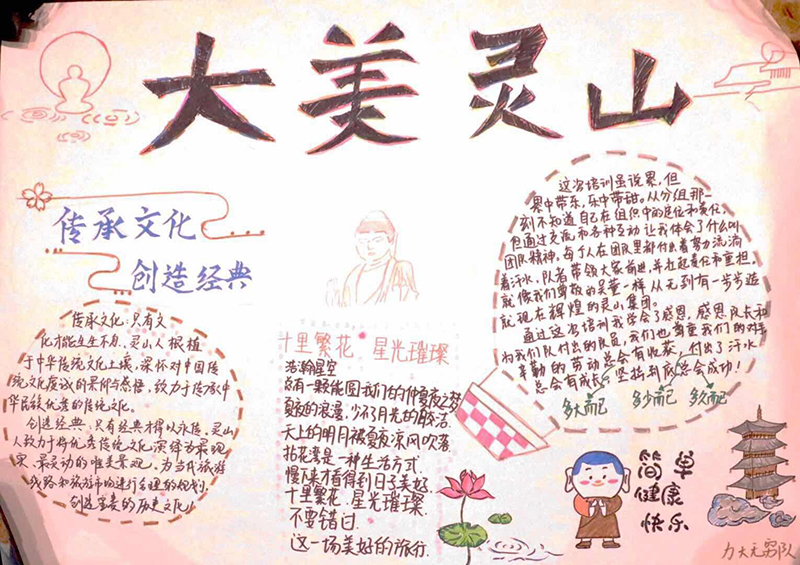 大美灵山
传承文化
创造经典
传承文化:只有文
化才能生生不息,灵山人根植
于中华传统文化土壤,深怀对中国传
统文化虔诚的景仰与感悟,致力于传承中
华民族优秀的传统文化。
创造经典:只有经典才得以永传,灵山
人致力于将优秀传统文化演绎为最现
实、最灵动的唯美景观,为当代旅游
线路和旅游市场进行合理的规划,
创造宝贵的历史文化
十里繁花 星光璀璨
浩瀚星空
总有一颗能圆我们的仲夏夜之梦
夏夜的浪漫,少不了月光的皎洁
天上的明月被夏夜凉风吹落
拈花湾是一种生活方式
慢下来才看得到日子美好
十里繁花,星光璀璨
不要错过
这一场美好的旅行
这次培训虽说累,但
累中带乐,乐中带甜。从分组那一
刻不知道自己在组织中的定位和责任,
但通过交流和各种互动让我体会了什么叫
团队精神,每个人在团队里都付出着努力流淌
着汗水,队长带领大家前进,并担起责任和重担,
就像我们尊敬的吴董一样从无到有一步步造
就现在辉煌的灵山集团。
通过这次培训我学会了感恩,感恩队长和
为我们队付出的队员,我们也尊重我们的对手
辛勤的劳动总会有收获,付出了汗水
总会有成长,坚持到底总会成功!
多大而已 多少而已 多久而已
简单
健康
快乐
力大无穷队